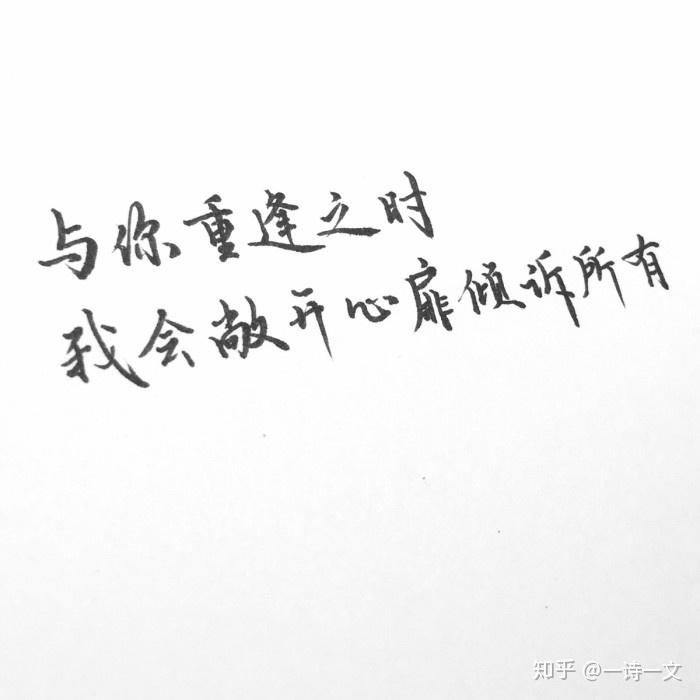 与你重逢之时
我会敞开心扉倾诉所有
知乎 @一诗一文